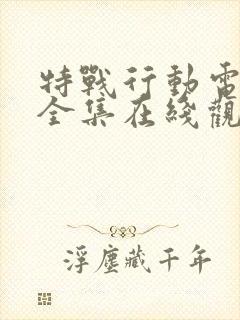 特戰行動電
全集在綫觀
浮塵藏千年